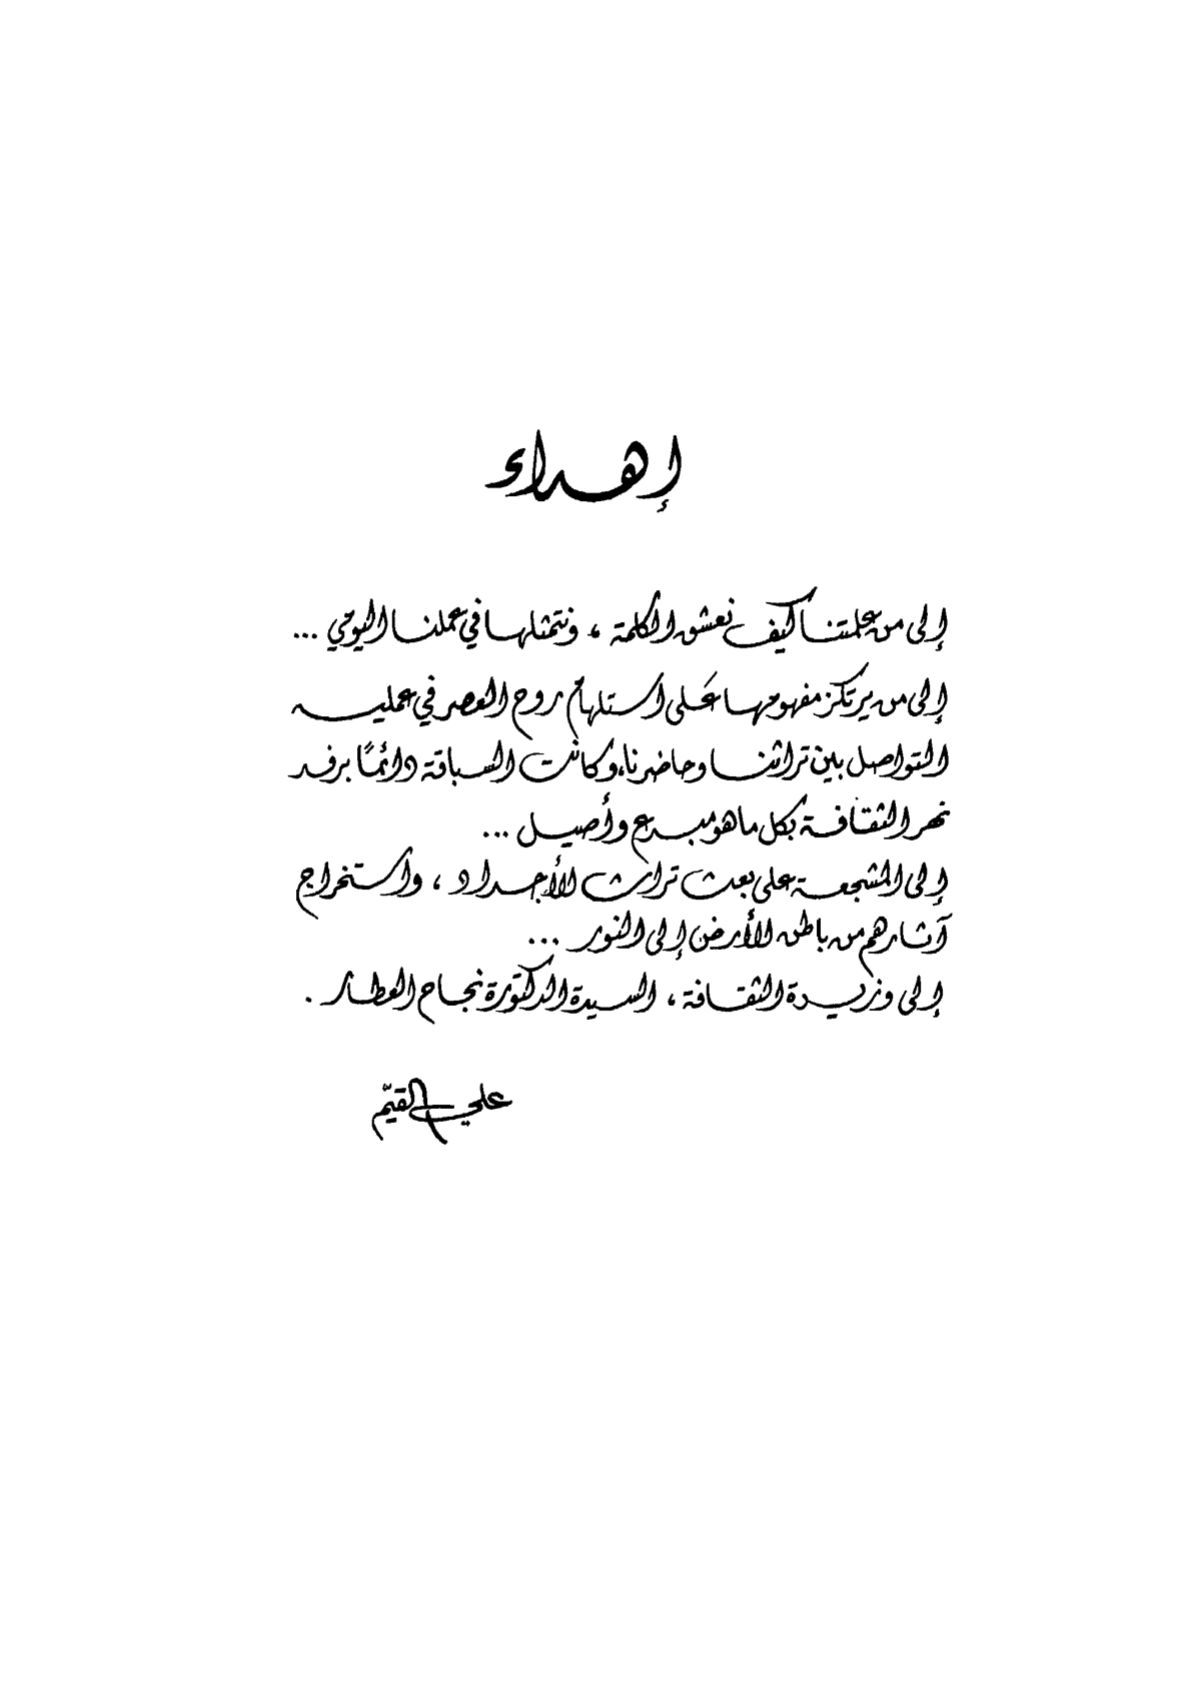 إهداء
إلى من علمتنا كيف نعشق الكلمة ، ونتمثلها في عملنا اليومي ...
إلى من يرتكز مفهومها على استلهام روح العصر في عملية
التواصل بين تراثنا وحاضرنا، وكانت السباقة دائمًا برفد
نهر الثقافة بكل ما هو مبدع وأصيل ...
إلى المشجعة على بعث تراث الأجداد ، واستخراج
آثارهم من باطن الأرض إلى النور ...
إلى وزيرة الثقافة ، السيدة الدكتورة نجاح العطار .
علي القيّم